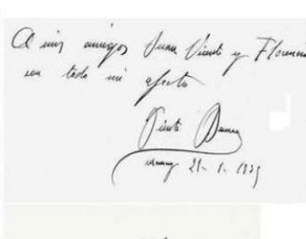 A mis amigos Juan Vicente y Florencio
con todo mi afecto
Vicente
21-1-1939